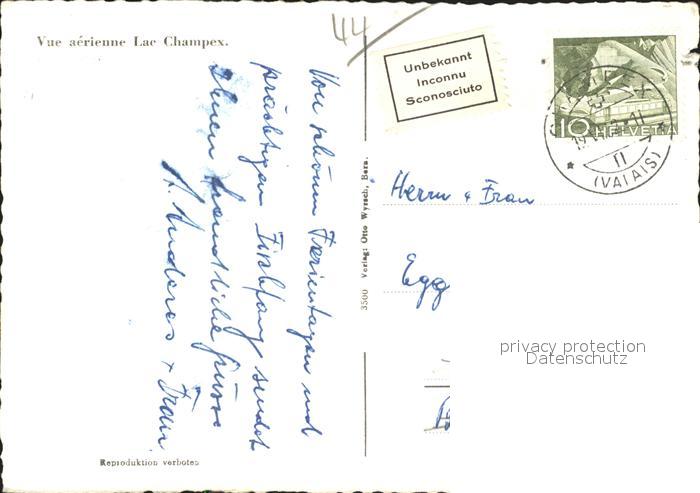 Vue aérienne Lac Champex.
44
Von schönen Ferientagen und
prächtigem Fischfang sendet
Ihnen freundliche Grüsse
H. Anderes & Frau.
Reproduktion verboten
3500 Verlag: Otto Wyrsch, Bern.
Unbekannt
Inconnu
Sconosciuto
10 HELVETIA
(VALAIS)
Herrn & Frau
Egg
privacy protection
Datenschutz